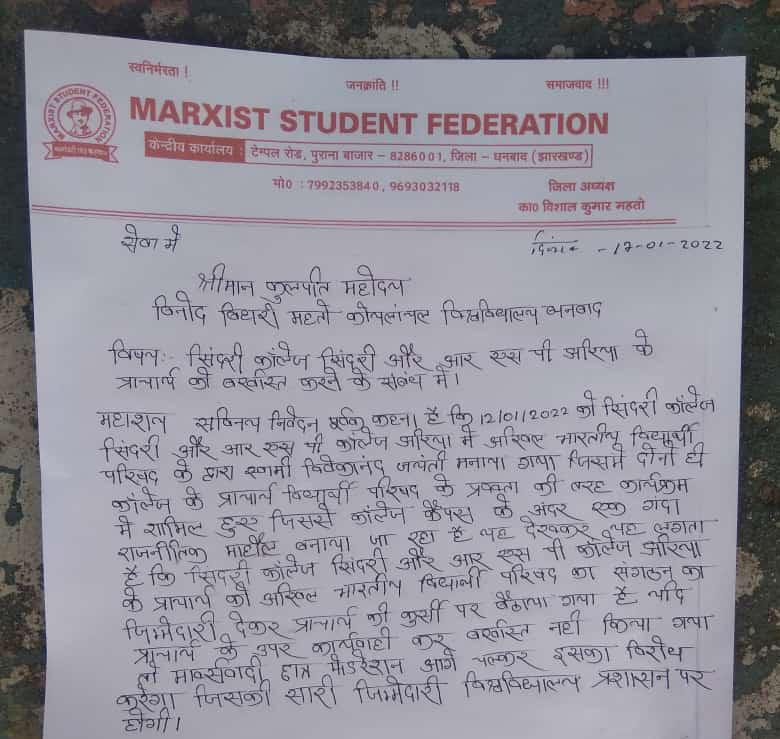 स्वनिर्भरता ! जनक्रांति !! समाजवाद !!!
MARXIST STUDENT FEDERATION
MARXIST STUDENT FEDERATION
केन्द्रीय कार्यालय : टेम्पल रोड, पुराना बाजार – 8286001, जिला – धनबाद (झारखण्ड)
मो0 : 7992353840, 9693032118
जिला अध्यक्ष
का0 विशाल कुमार महतो
सेवा में
दिनांक -17-01-2022
श्रीमान कुलपति महोदय
विनोद बिहारी महतो कोयलांचल विश्वविद्यालय धनबाद
विषय:- सिंदरी कॉलेज सिंदरी और आर एस पी झरिया के
प्राचार्य को बर्खास्त करने के संबंध में।
महाशय सविनय निवेदन पूर्वक कहना है कि 12/01/2022 को सिंदरी कॉलेज
सिंदरी और आर एस पी कॉलेज झरिया में अखिल भारतीय विद्यार्थी
परिषद के द्वारा स्वामी विवेकानंद जयंती मनाया गया जिसमें दोनों ही
कॉलेज के प्राचार्य विद्यार्थी परिषद के प्रवक्ता की तरह कार्यक्रम
में शामिल हुए जिससे कॉलेज कैंपस के अंदर एक गंदा
राजनीतिक माहौल बनाया जा रहा है यह देखकर यह लगता
है कि सिंदरी कॉलेज सिंदरी और आर एस पी कॉलेज झरिया
के प्राचार्य को अखिल भारतीय विद्यार्थी परिषद का संगठन का
जिम्मेदारी देकर प्राचार्य की कुर्सी पर बैठाया गया है यदि
प्राचार्य के उपर कार्यवाही कर बर्खास्त नहीं किया गया
तो मार्क्सवादी छात्र फेडरेशन आगे चलकर इसका विरोध
करेगा जिसकी सारी जिम्मेदारी विश्वविद्यालय प्रशासन पर
होगी।